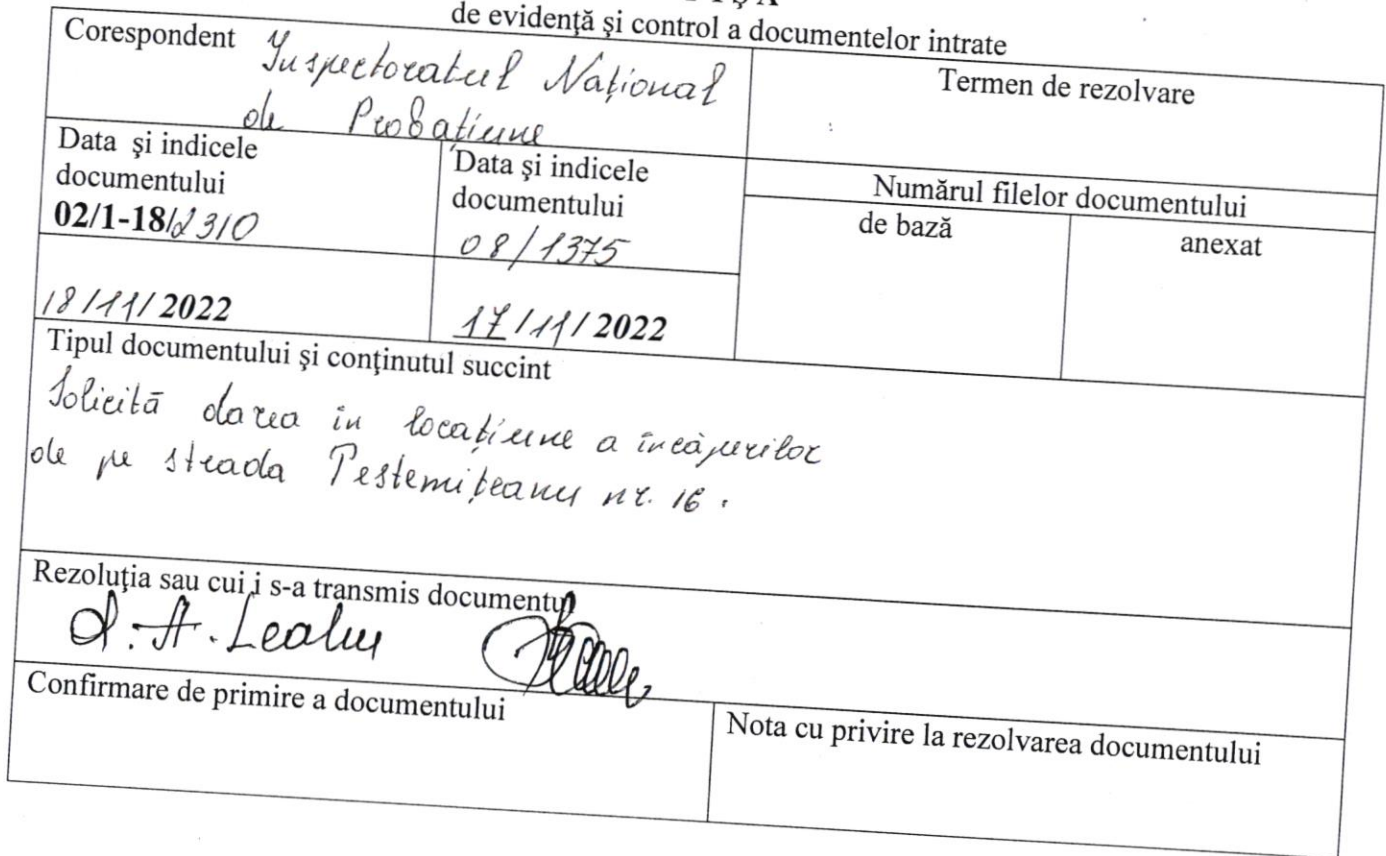 de evidenţă şi control a documentelor intrate
Corespondent Inspectoratul Național
de Probațiune
Termen de rezolvare
Data şi indicele
documentului
02/1-18/2310
Data şi indicele
documentului
08/1375
Numărul filelor documentului
de bază
anexat
18/11/2022
17/11/2022
Tipul documentului şi conţinutul succint
Solicită darea in locațiune a încăperilor
de pe strada Testemițeanu nr. 16.
Rezoluţia sau cui i s-a transmis documentul
d. A. Lealu
Confirmare de primire a documentului
Nota cu privire la rezolvarea documentului